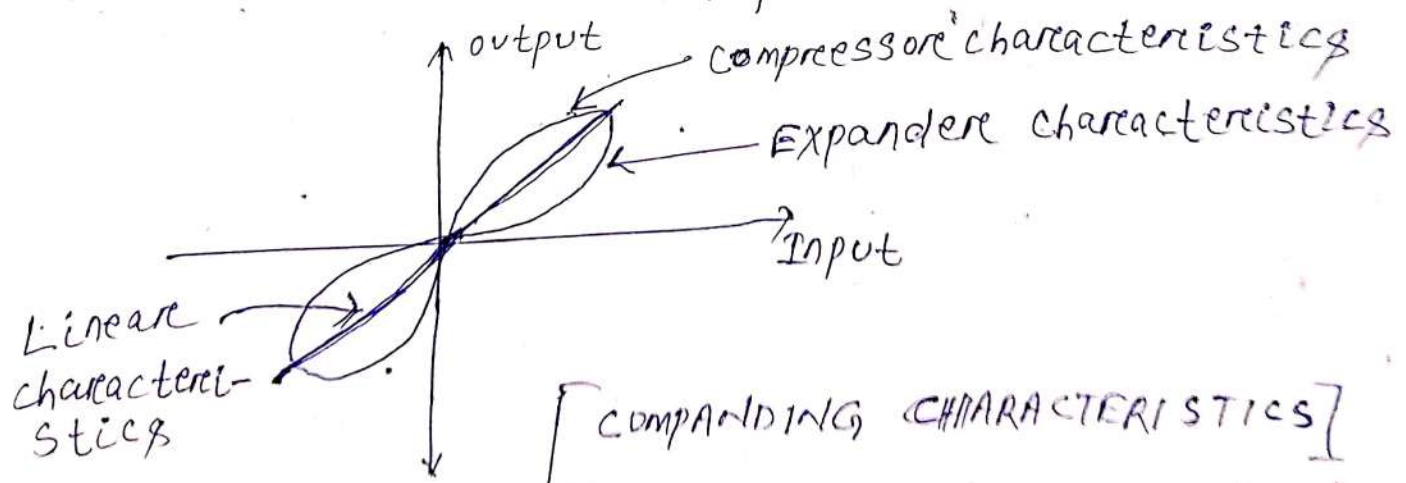 output
compressor characteristics
Expander characteristics
Input
Linear
characteri-
stics
[COMPANDING CHARACTERISTICS]